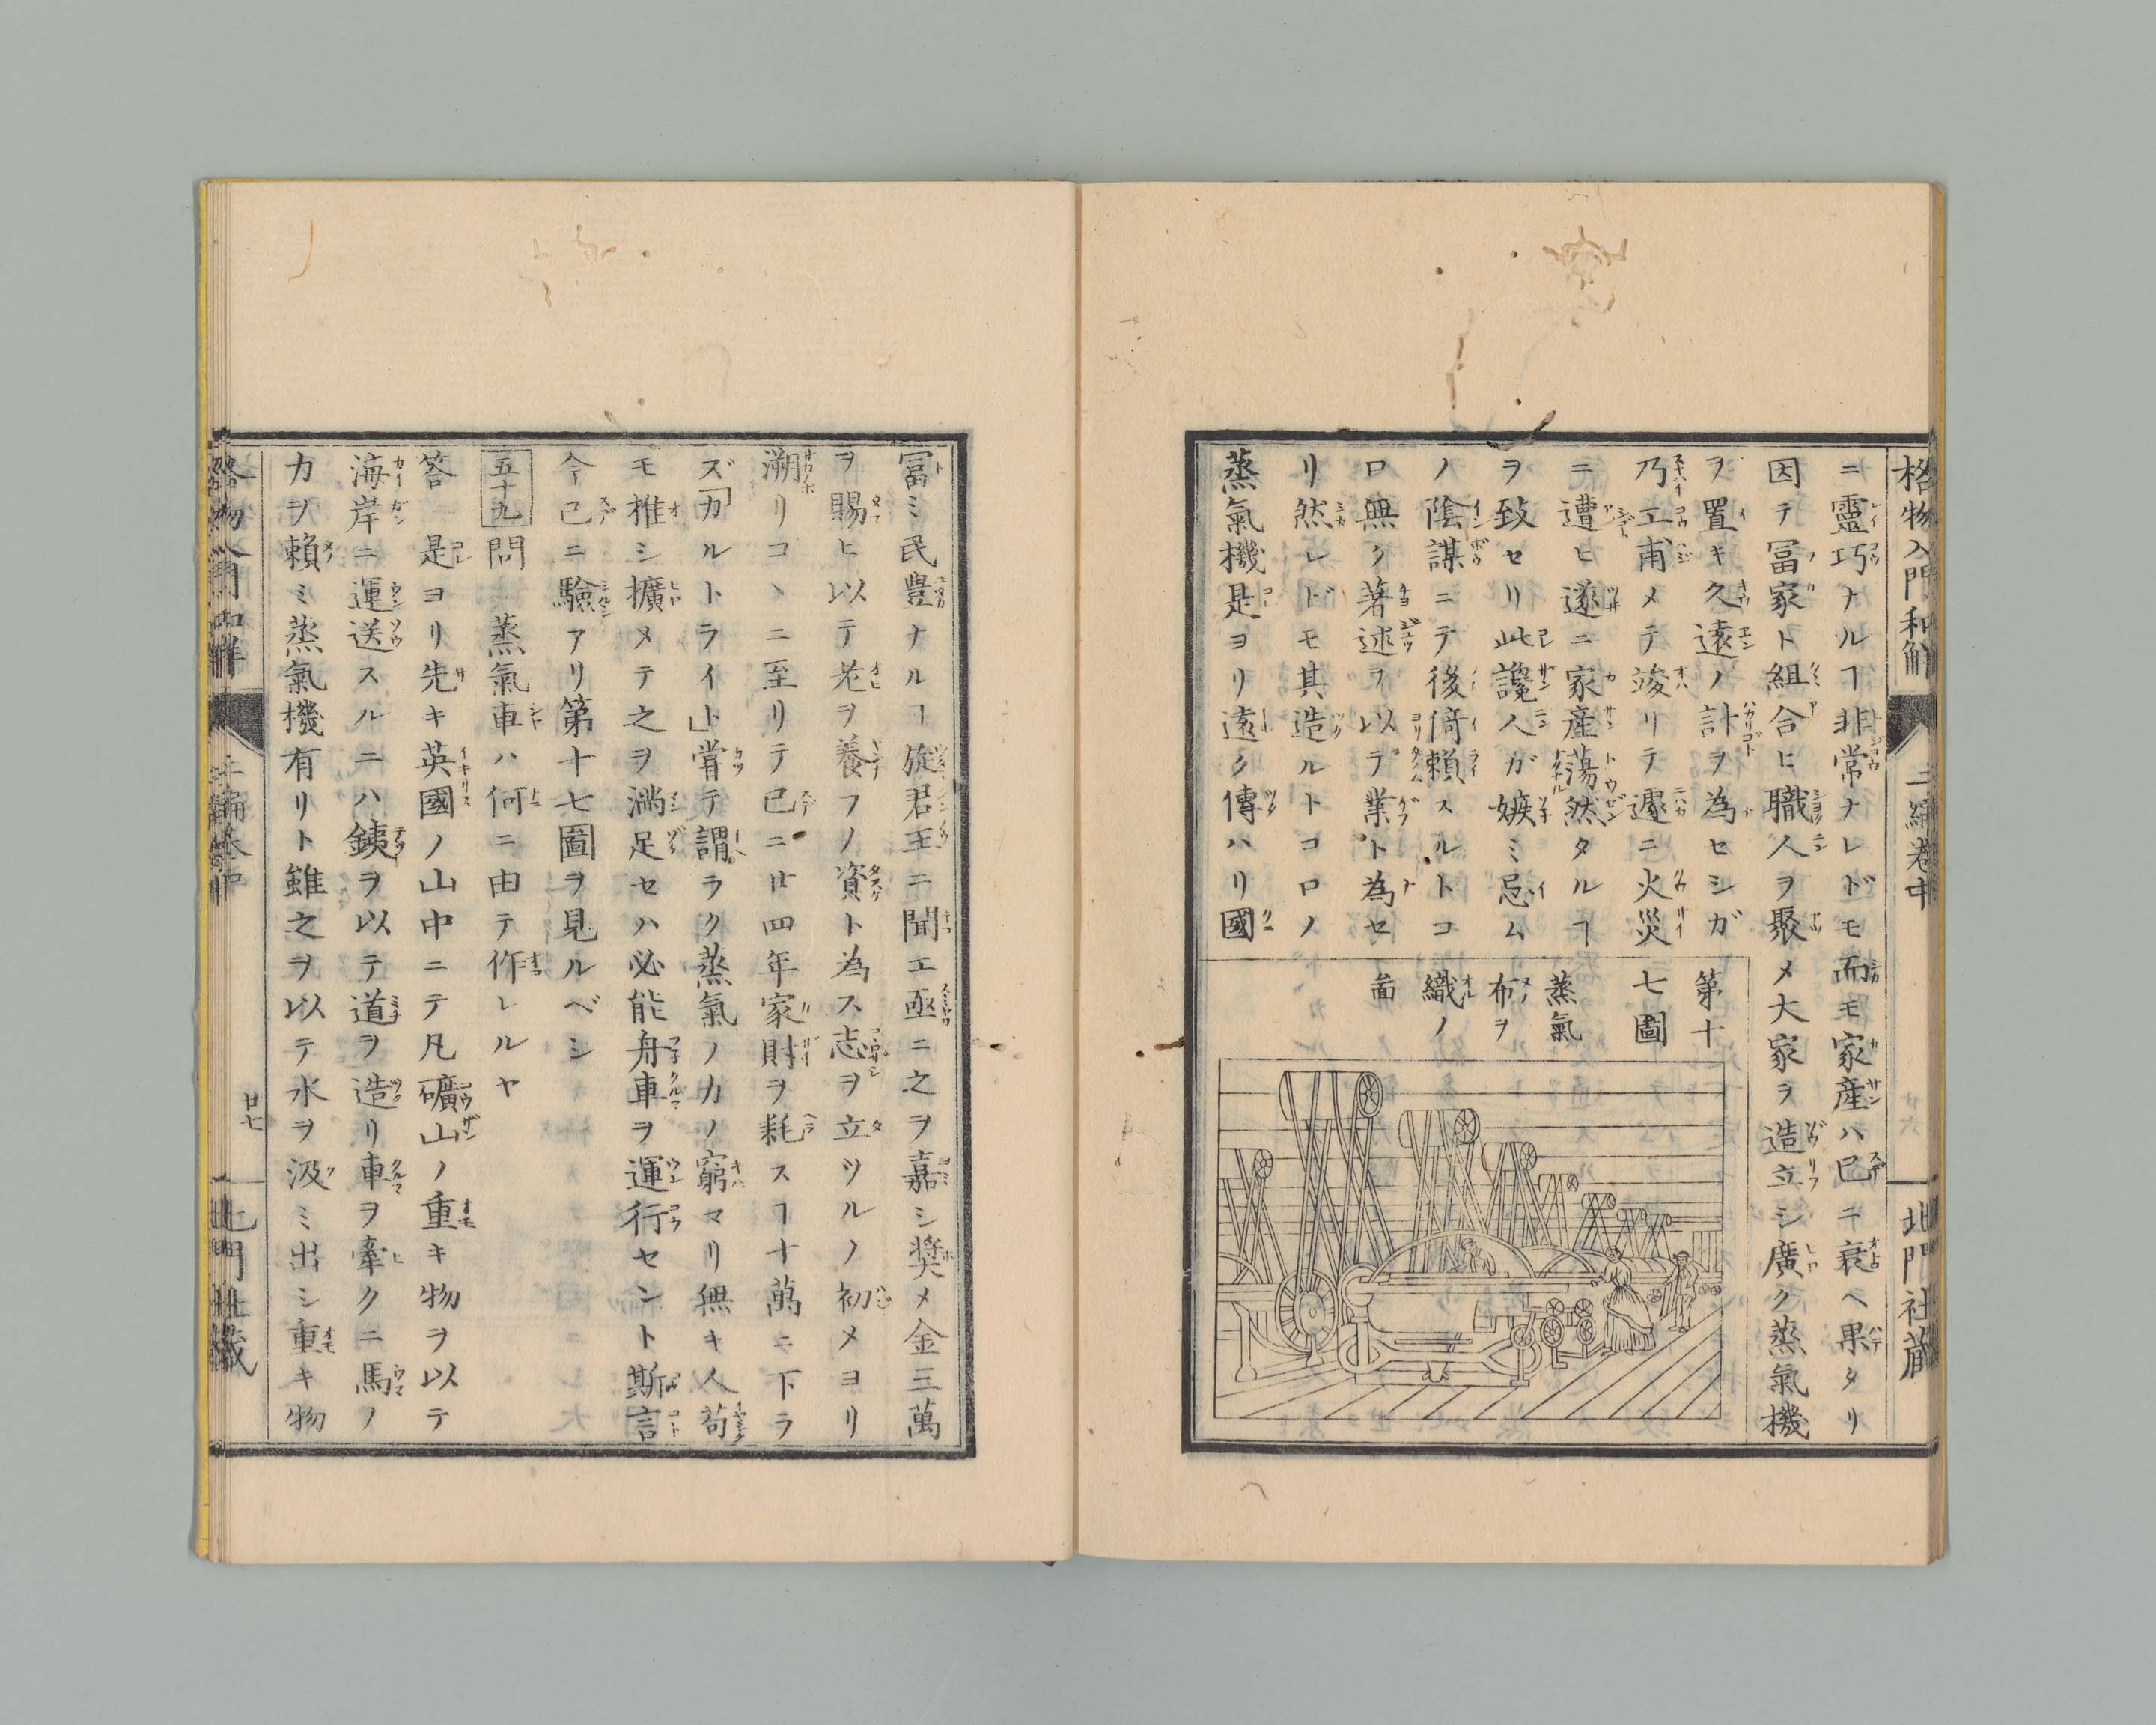 格物入門和解
三編卷中
北門社藏
ニ靈巧ナルヿ非常ナレドモ而モ家産ハ已ニ衰ヘ果タリ
因テ冨家ト組合ヒ職人ヲ聚メ大家ヲ造立シ廣ク蒸氣機
ヲ置キ久遠ノ計ヲ為セシガ
乃工甫メテ竣リテ遽ニ火災
ニ遭ヒ遂ニ家産蕩然タルヿ
ヲ致セリ此讒人ガ嫉ミ忌ム
ノ陰謀ニテ後倚賴スルトコ
ロ無ク著述ヲ以テ業ト為セ
リ然レドモ其造ルトコロノ
蒸氣機是ヨリ遠ク傳ハリ國
第十
七圖
蒸氣
布ヲ
織ノ
啚
冨ミ民豊ナルヿ旋君主ニ聞エ亟ニ之ヲ嘉シ奬メ金三萬
ヲ賜ヒ以テ老ヲ養フノ資ト為ス志ヲ立ツルノ初メヨリ
溯リコヽニ至リテ已ニ廿四年家財ヲ耗スヿ十萬ニ下ラ
ズ「カルトライト」嘗テ謂ラク蒸氣ノカノ窮マリ無キ人苟
モ推シ擴メテ之ヲ満足セハ必能舟車ヲ運行セント斯言
今已ニ驗アリ第十七圖ヲ見ルベシ
五十九問 蒸氣車ハ何ニ由テ作レルヤ
答 是ヨリ先キ英國ノ山中ニテ凡礦山ノ重キ物ヲ以テ
海岸ニ運送スルニハ銕ヲ以テ道ヲ造リ車ヲ牽クニ馬ノ
力ヲ賴ミ蒸氣機有リト雖之ヲ以テ水ヲ汲ミ出シ重キ物
廿七